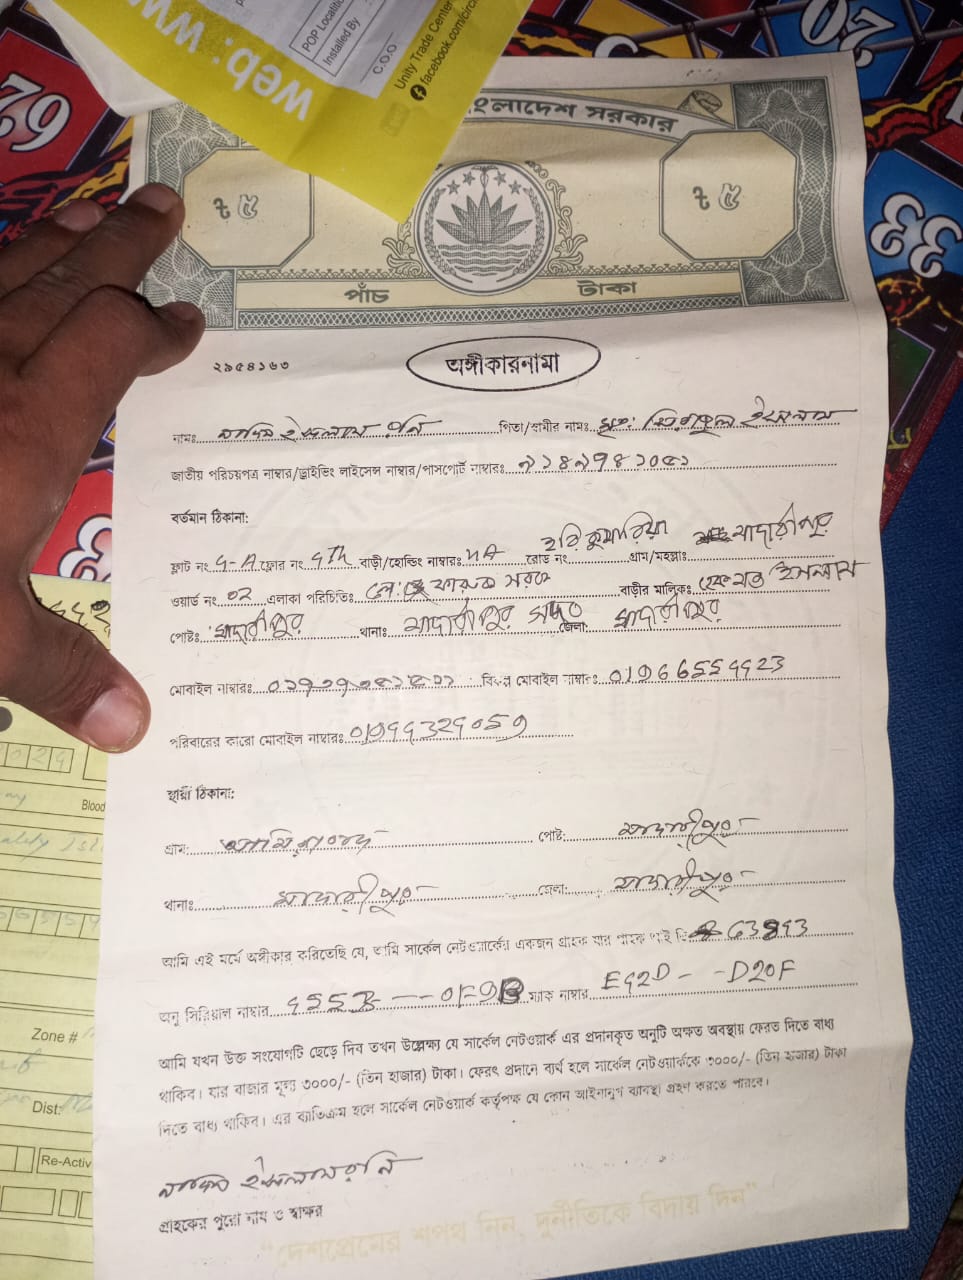 web: ww
POP Locatio
Installed By
C.O.O
Unity Trade Center
facebook.com/circ
62
20
33
বাংলাদেশ সরকার
৳ ৫
৳ ৫
পাঁচ টাকা
২৯৫৪১৬৩
অঙ্গীকারনামা
নামঃ ইসলাম রনি পিতা/স্বামীর নামঃ মৃত: সিরাজুল ইসলাম
জাতীয় পরিচয়পত্র নাম্বার/ড্রাইভিং লাইসেন্স নাম্বার/পাসপোর্ট নাম্বারঃ
বর্তমান ঠিকানা:
ফ্লাট নং 4-A ফ্লোর নং 4Th বাড়ী/হোল্ডিং নাম্বারঃ NA রোড নং হরি কুমারিয়া গ্রাম/মহল্লাঃ মাদারীপুর
ওয়ার্ড নং 02 এলাকা পরিচিতিঃ বাড়ীর মালিকঃ ইসলাম
পোষ্টঃ মাদারীপুর থানাঃ মাদারীপুর সদর জেলা: মাদারীপুর
মোবাইল নাম্বারঃ বিকল্প মোবাইল নাম্বারঃ
পরিবারের কারো মোবাইল নাম্বারঃ
স্থায়ী ঠিকানা:
গ্রাম: পোষ্ট: মাদারীপুর
থানাঃ মাদারীপুর জেলা: মাদারীপুর
আমি এই মর্মে অঙ্গীকার করিতেছি যে, আমি সার্কেল নেটওয়ার্কের একজন গ্রাহক যার গ্রাহক আই ডি
অনু সিরিয়াল নাম্বার ম্যাক নাম্বার E42D - -D20F
আমি যখন উক্ত সংযোগটি ছেড়ে দিব তখন উল্লেখ্য যে সার্কেল নেটওয়ার্ক এর প্রদানকৃত অনুটি অক্ষত অবস্থায় ফেরত দিতে বাধ্য
থাকিব। যার বাজার মূল্য ৩০০০/- (তিন হাজার) টাকা। ফেরৎ প্রদানে ব্যর্থ হলে সার্কেল নেটওয়ার্ককে ৩০০০/- (তিন হাজার) টাকা
দিতে বাধ্য থাকিব। এর ব্যতিক্রম হলে সার্কেল নেটওয়ার্ক কর্তৃপক্ষ যে কোন আইনানুগ ব্যবস্থা গ্রহণ করতে পারবে।
ইসলাম রনি
গ্রাহকের পুরো নাম ও স্বাক্ষর
"দেশপ্রেমের শপথ নিন, দুর্নীতিকে বিদায় দিন"
Blood
Zone #
Dist:
Re-Activ